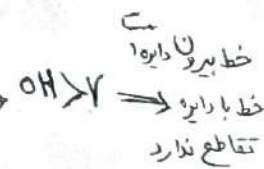 خط بیرون دایره است
OH>r ⟹ خط با دایره
تقاطع ندارد